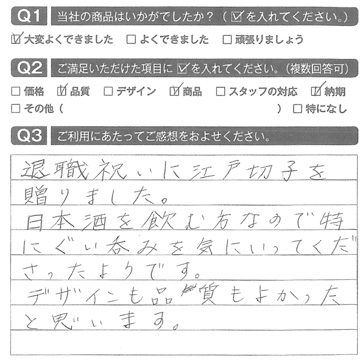 Q1 当社の商品はいかがでしたか？（☑を入れてください。）
☑大変よくできました □よくできました □頑張りましょう
Q2 ご満足いただけた項目に☑を入れてください。（複数回答可）
□価格 ☑品質 □デザイン ☑商品 □スタッフの対応 ☑納期
□その他（ ）□特になし
Q3 ご利用にあたってご感想をおよせください。
退職祝いに江戸切子を
贈りました。
日本酒を飲む方なので特
にぐい呑みを気にいってくだ
さったようです。
デザインも品質もよかった
と思います。